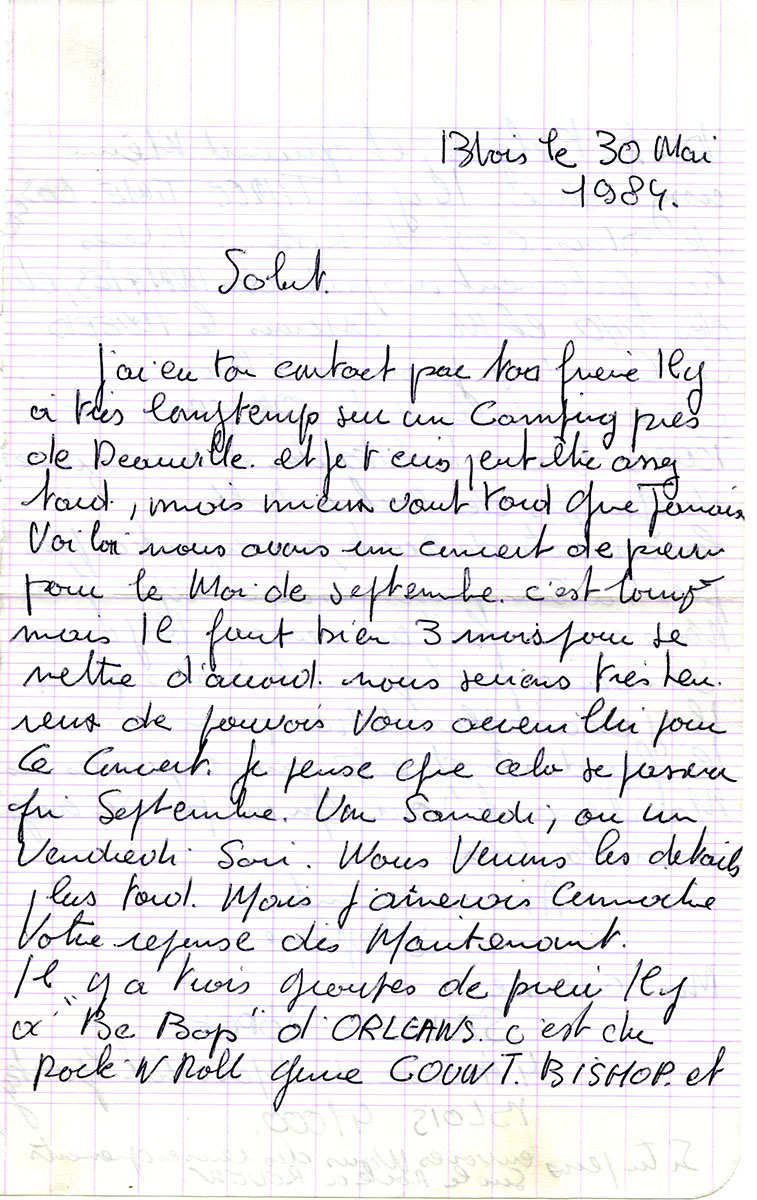 Blois le 30 Mai
1984.
Salut.
j'ai eu ton contact par ton frere Il y
a très longtemp sur un Camping près
de Deauville. et je t'ecris peut être assez
tard, mais mieux vaut tard que Jamais
Voilà nous avons un concert de prévu
pour le Moi de septembre. c'est long
mais Il faut bien 3 mois pour se
mettre d'accord. nous serions très heu.
reux de pouvoir Vous accueillir pour
Ce Concert. Je pense que cela se passera
fin Septembre. Un Samedi, ou un
Vendredi Soir. Nous Verrons les détails
plus tard. Mais j'aimerais Connaitre
Votre reponse dès Maintenant.
Il y a trois groupes de prevu Il y
a "Be Bop" d'ORLEANS. c'est du
Rock'N Roll genre COUNT. BISHOP. et